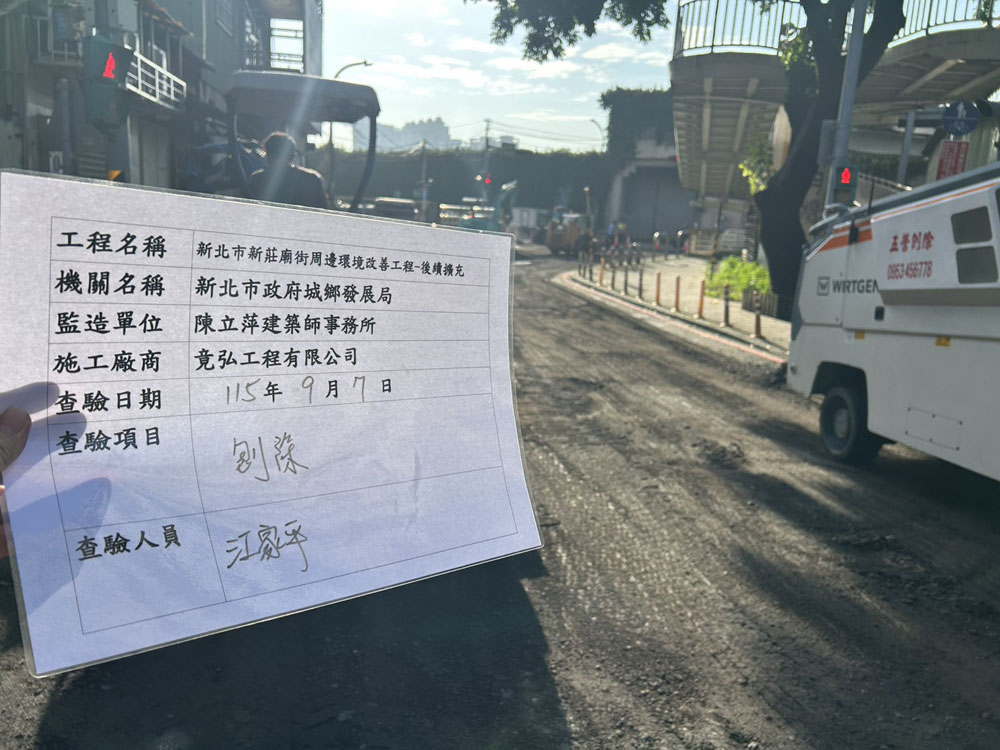 工程名稱 新北市新莊廟街周邊環境改善工程-後續擴充
機關名稱 新北市政府城鄉發展局
監造單位 陳立萍建築師事務所
施工廠商 竟弘工程有限公司
查驗日期 115年9月7日
查驗項目 刨除
查驗人員 江家平
五營刨除
0953456778
WIRTGEN